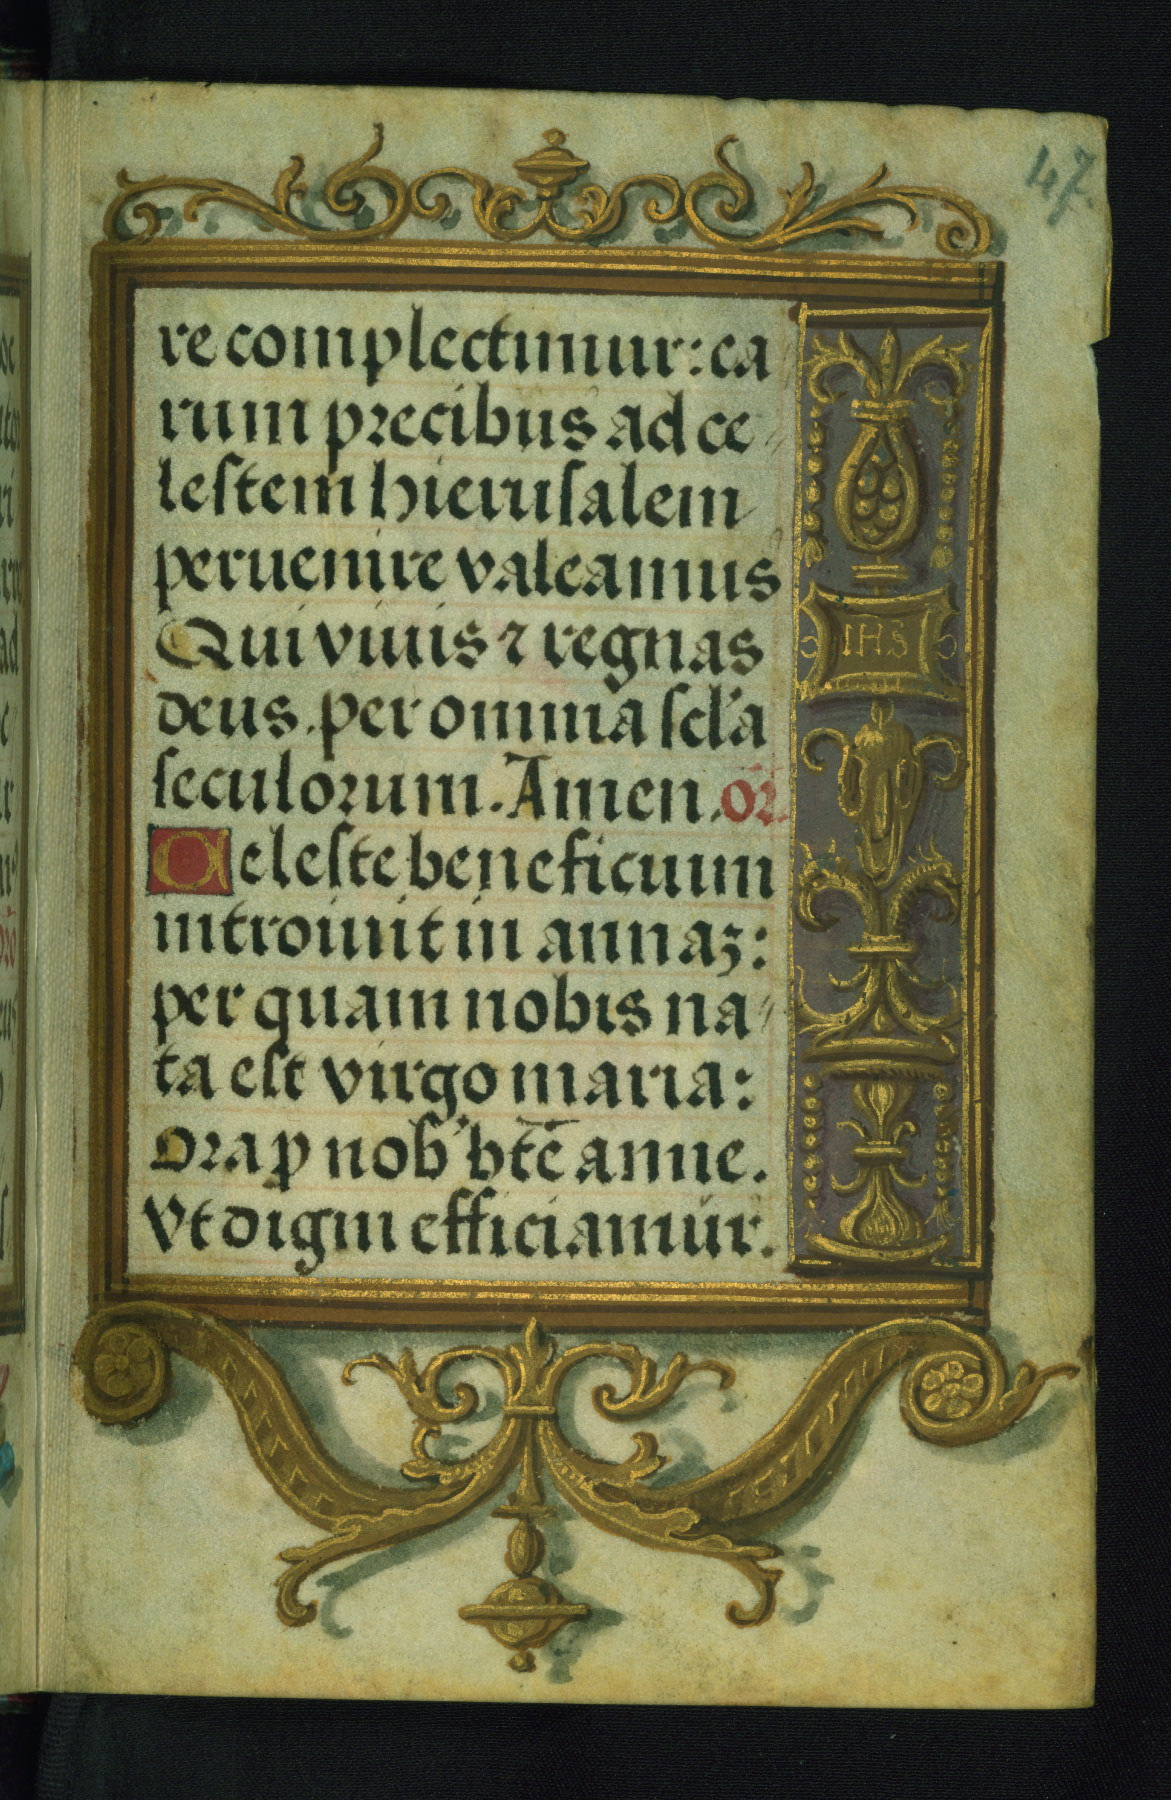 47
re complectimur: ea
rum precibus ad ce
lestem hierusalem
peruenire valeamus
Qui viuis ⁊ regnas
deus. per omnia scl'a
seculorum. Amen. or̄
Celeste beneficium
introiuit in annaʒ:
per quam nobis na
ta est virgo maria:
Ora ꝓ nob' bt̄e anne.
Vt digni efficiamur.
IHS